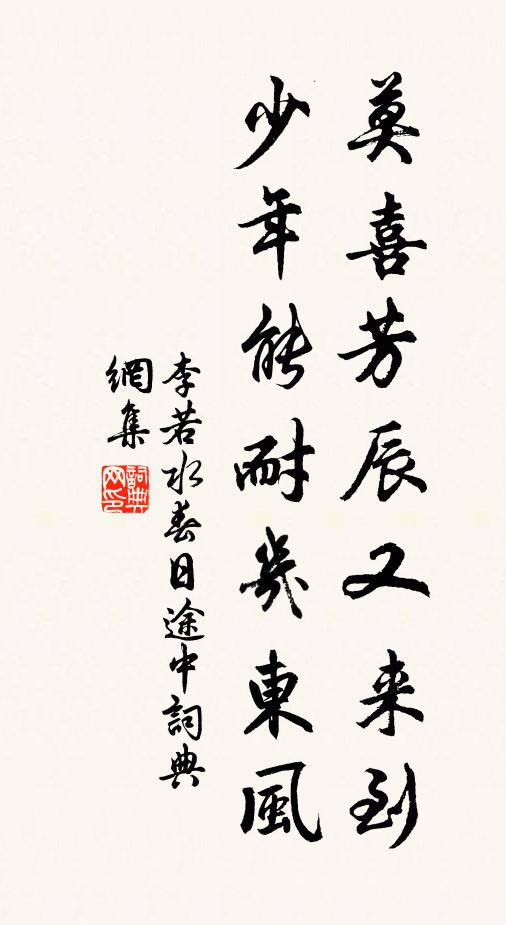 莫喜芳辰又来到
少年能耐幾東風
李若水春日途中詞典
網集
詞典網印